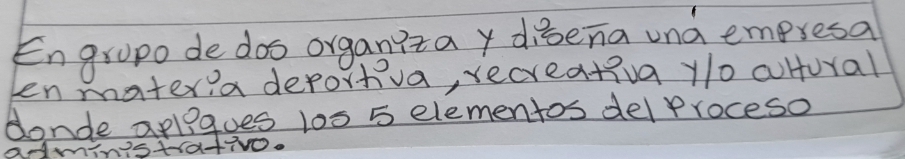 En grupo de dos organiza y diseña una empresa
en materia deportiva, recreativa y/o cultural
donde apliques los 5 elementos del proceso
administrativo.